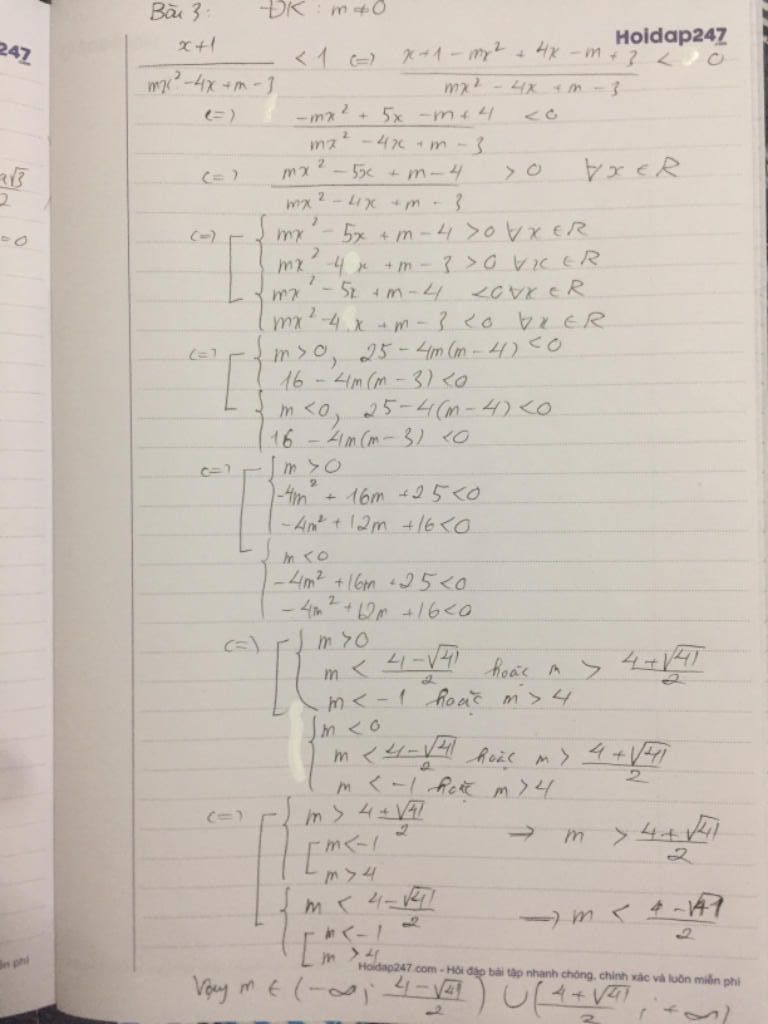 Bài 3: ĐK: m ≠ 0
Hoidap247
247
(x+1)/(mx² - 4x + m - 3) < 1 (=) (x + 1 - mx² + 4x - m + 3)/(mx² - 4x + m - 3) < 0
(=) (-mx² + 5x - m + 4)/(mx² - 4x + m - 3) < 0
a√3/2
(=) (mx² - 5x + m - 4)/(mx² - 4x + m - 3) > 0 ∀x ∈ R
= 0
(=) [ { mx² - 5x + m - 4 > 0 ∀x ∈ R
mx² - 4x + m - 3 > 0 ∀x ∈ R
{ mx² - 5x + m - 4 < 0 ∀x ∈ R
mx² - 4x + m - 3 < 0 ∀x ∈ R
(=) [ { m > 0, 25 - 4m(m - 4) < 0
16 - 4m(m - 3) < 0
{ m < 0, 25 - 4(m - 4) < 0
16 - 4m(m - 3) < 0
(=) [ { m > 0
-4m² + 16m + 25 < 0
-4m² + 12m + 16 < 0
{ m < 0
-4m² + 16m + 25 < 0
-4m² + 12m + 16 < 0
(=) [ { m > 0
m < (4 - √41)/2 hoặc m > (4 + √41)/2
m < -1 hoặc m > 4
{ m < 0
m < (4 - √41)/2 hoặc m > (4 + √41)/2
m < -1 hoặc m > 4
(=) [ { m > (4 + √41)/2 → m > (4 + √41)/2
[ m < -1
m > 4
{ m < (4 - √41)/2 → m < (4 - √41)/2
[ m < -1
m > 4
Hoidap247.com - Hỏi đáp bài tập nhanh chóng, chính xác và luôn miễn phí
ễn phí
Vậy m ∈ (-∞; (4 - √41)/2) ∪ ((4 + √41)/2; +∞)